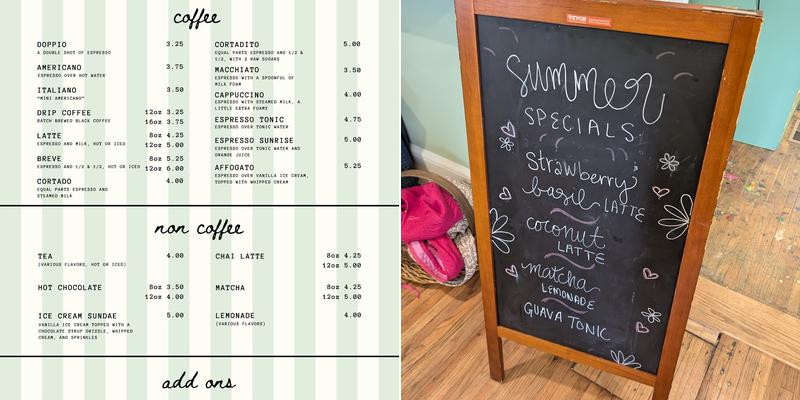 coffee
DOPPIO 3.25
A DOUBLE SHOT OF ESPRESSO
AMERICANO 3.75
ESPRESSO OVER HOT WATER
ITALIANO 3.50
"MINI AMERICANO"
DRIP COFFEE 12oz 3.25
BATCH BREWED BLACK COFFEE 16oz 3.75
LATTE 8oz 4.25
ESPRESSO AND MILK, HOT OR ICED 12oz 5.00
BREVE 8oz 5.25
ESPRESSO AND 1/2 & 1/2, HOT OR ICED 12oz 6.00
CORTADO 4.00
EQUAL PARTS ESPRESSO AND
STEAMED MILK
CORTADITO 5.00
EQUAL PARTS ESPRESSO AND 1/2 &
1/2, WITH 2 RAW SUGARS
MACCHIATO 3.50
ESPRESSO WITH A SPOONFUL OF
MILK FOAM
CAPPUCCINO 4.00
ESPRESSO WITH STEAMED MILK, A
LITTLE EXTRA FOAMY
ESPRESSO TONIC 4.75
ESPRESSO OVER TONIC WATER
ESPRESSO SUNRISE 5.00
ESPRESSO OVER TONIC WATER AND
ORANGE JUICE
AFFOGATO 5.25
ESPRESSO OVER VANILLA ICE CREAM,
TOPPED WITH WHIPPED CREAM
non coffee
TEA 4.00
(VARIOUS FLAVORS, HOT OR ICED)
HOT CHOCOLATE 8oz 3.50
12oz 4.00
ICE CREAM SUNDAE 5.00
VANILLA ICE CREAM TOPPED WITH A
CHOCOLATE SYRUP DRIZZLE, WHIPPED
CREAM, AND SPRINKLES
CHAI LATTE 8oz 4.25
12oz 5.00
MATCHA 8oz 4.25
12oz 5.00
LEMONADE 4.00
(VARIOUS FLAVORS)
add ons
VEVOR
summer
SPECIALS
strawberry
basil LATTE
coconut
LATTE
matcha
LEMONADE
GUAVA TONIC